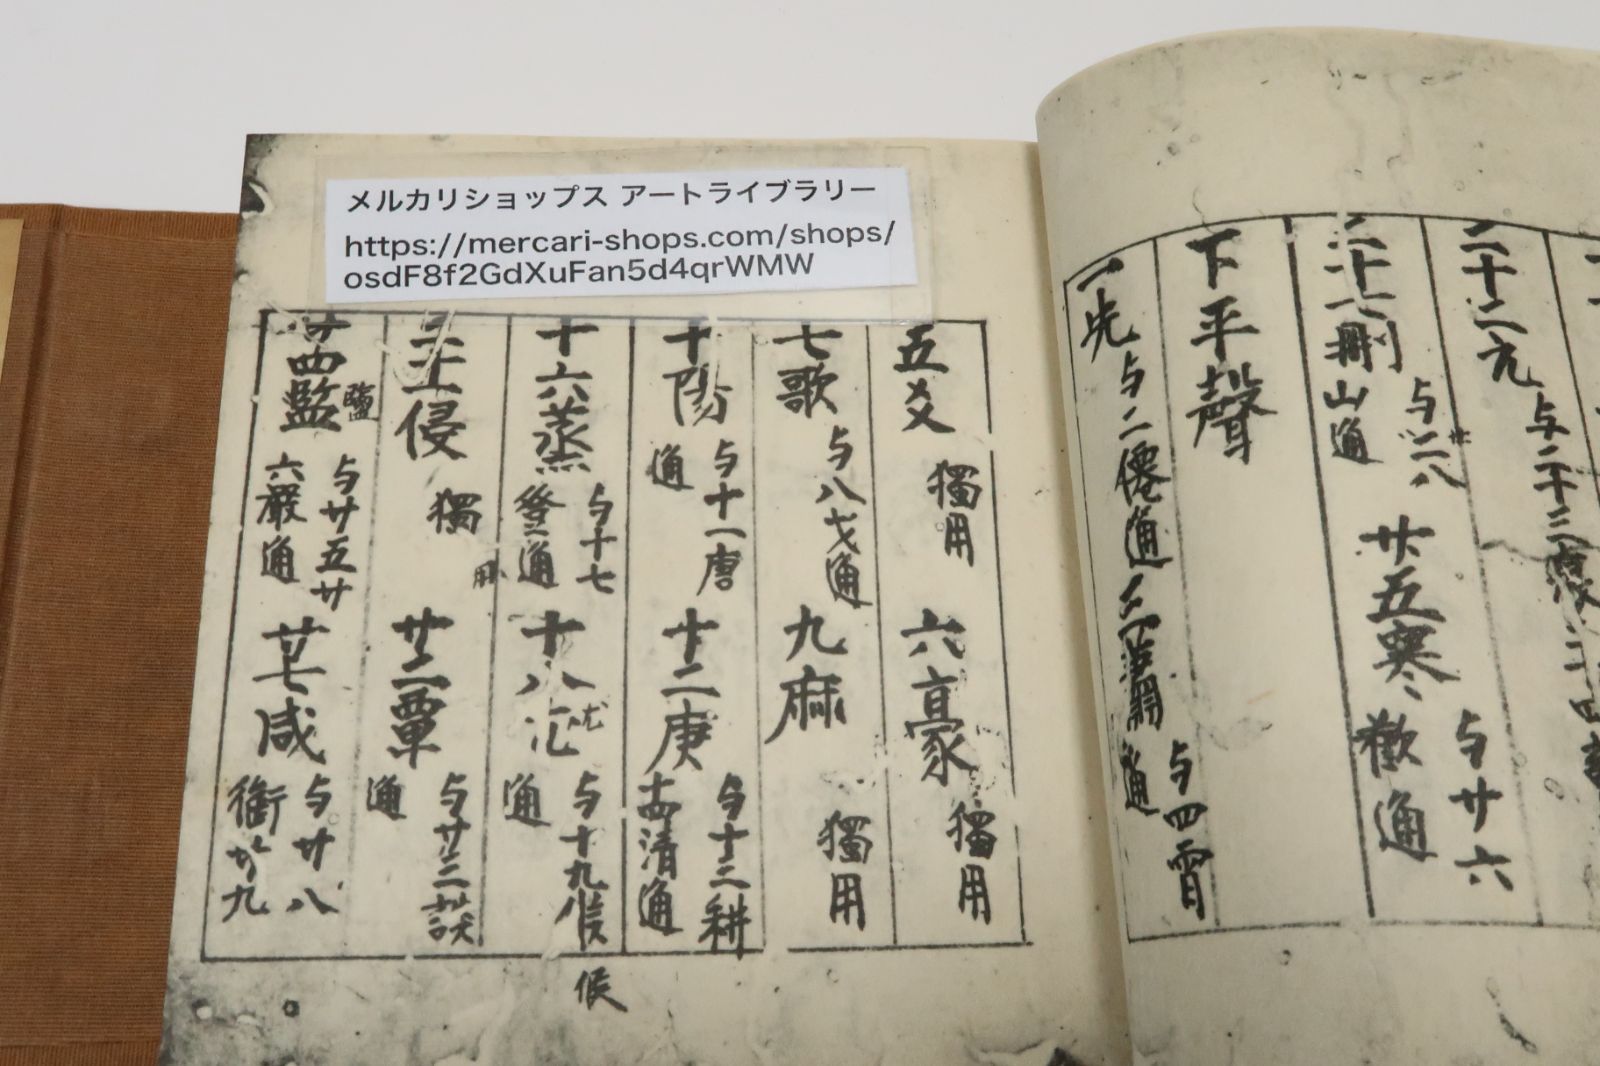 メルカリショップス アートライブラリー
https://mercari-shops.com/shops/
osdF8f2GdXuFan5d4qrWMW
二十二元 与二十三
廿五寒 与廿六
歡通
刪 与二八
山通
下平聲
一先 与二僊通 三蕭 与四宵
通
五爻 獨用 六豪 獨用
七歌 与八戈通 九麻 獨用
十陽 与十一唐
通
十二庚 与十三耕
十四清通
十六蒸 与十七
登通
十八 尤 与十九候
通
候
侵 獨用
廿二覃 与廿三談
通
廿四監 鹽 与廿五廿
六嚴通
廿七咸 与廿八
銜廿九